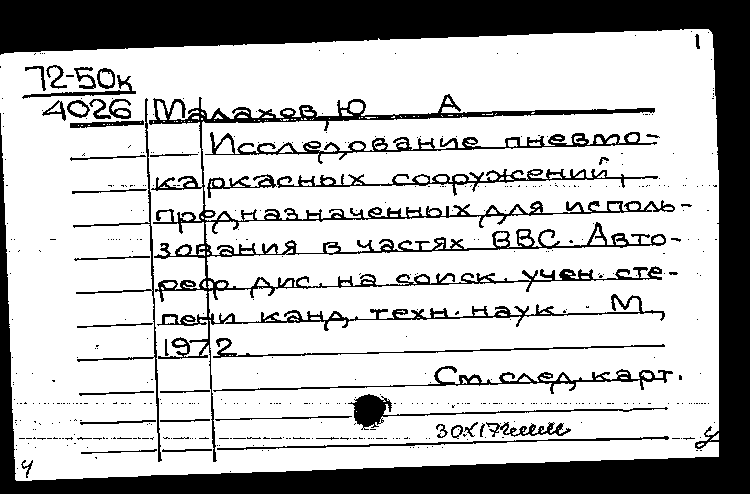 1
72-50к
4026 Малахов, Ю А
Исследование пневмо-
каркасных сооружений,
предназначенных для исполь-
зования в частях ВВС. Авто-
реф. дис. на соиск. учен. сте-
пени канд. техн. наук. М,
1972.
См. след. карт.